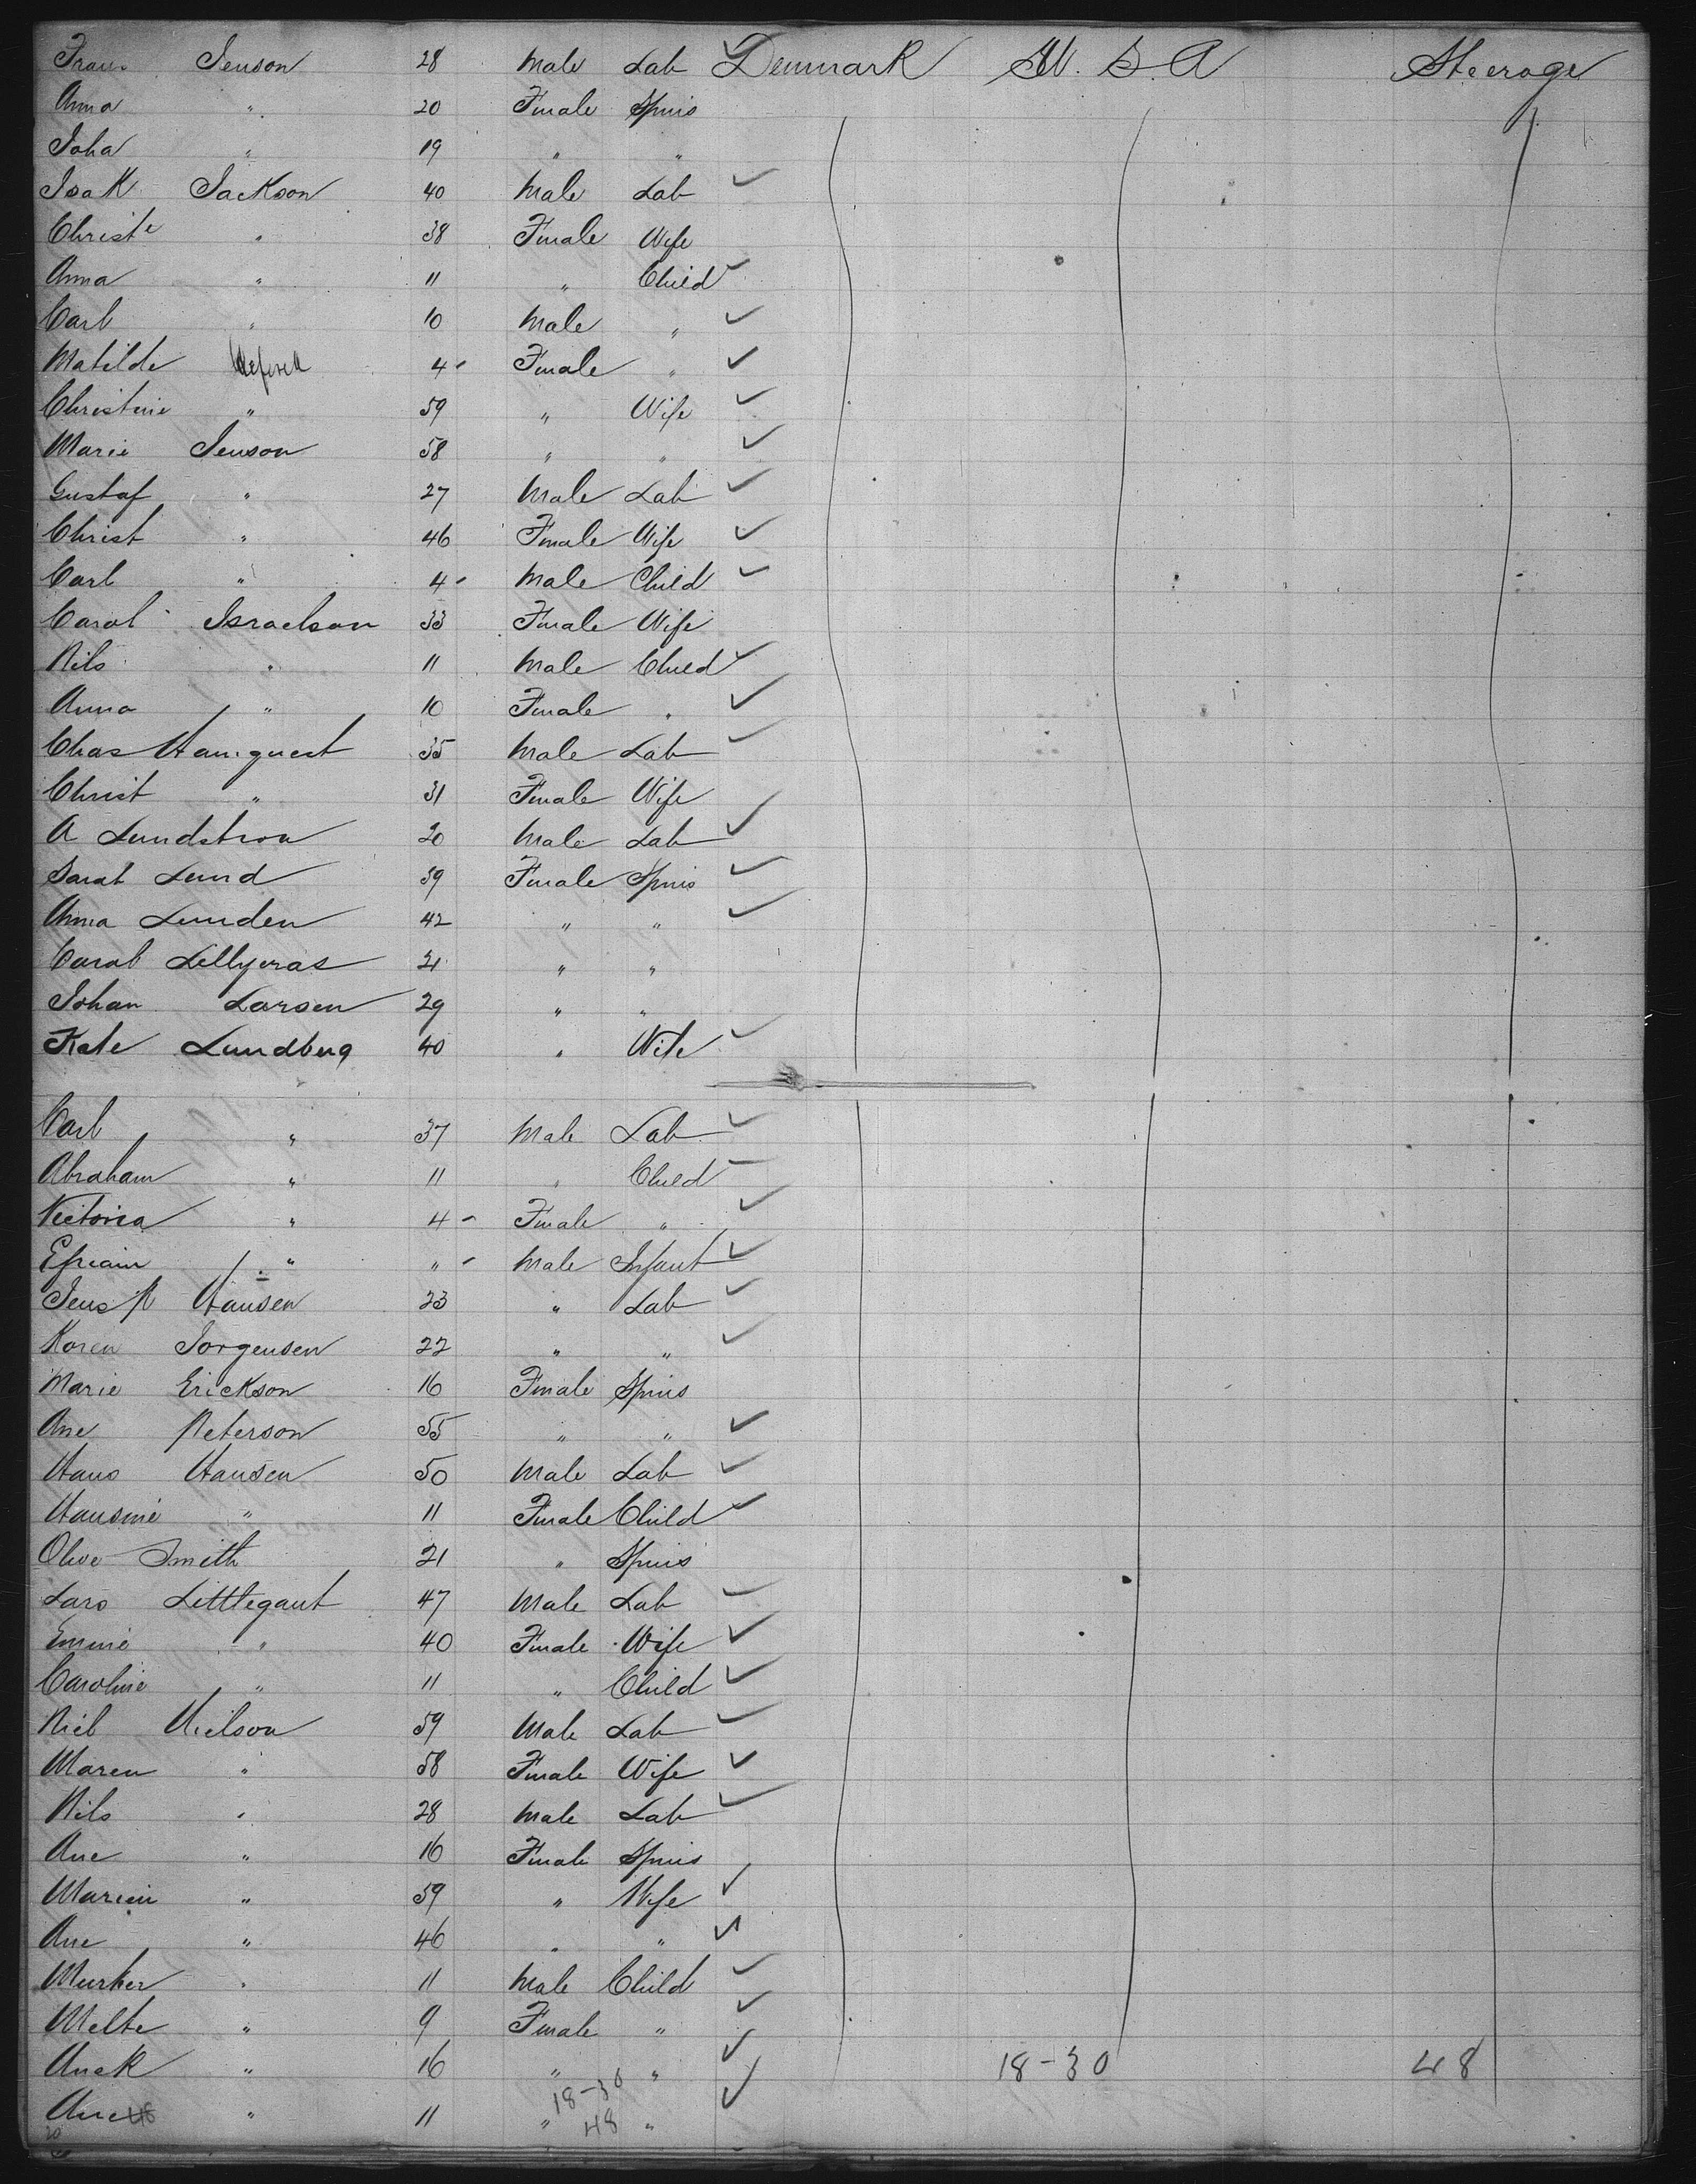 Jenson 28 Male Lab Denmark U. S. A Steerage
Anna " 20 Female Spins
Joha " 19 " "
Isak Jackson 40 Male Lab
Christe " 38 Female Wife
Anna " 11 " Child
Carl " 10 Male "
Matilde 4 Female "
Christine " 59 " Wife
Marie Jenson 58 " "
Gustaf " 27 Male Lab
Christ " 46 Female Wife
Carl " 4 Male Child
Carol Israelson 33 Female Wife
Nils " 11 Male Child
Anna " 10 Female "
Chas Hamquest 35 Male Lab
Christ " 31 Female Wife
A Lundstron 20 Male Lab
Sarah Lund 39 Female Spins
Anna Lunden 42 " "
Carol Lellyeras 21 " "
Johan Larsen 29 " "
Kate Lundberg 40 " Wife
Carl " 37 Male Lab
Abraham " 11 " Child
Victoria " 4 Female "
Efriam " " Male Infant
Jens P Hansen 23 " Lab
Koren Jorgensen 22 " "
Marie Erickson 16 Female Spins
Ane Peterson 55 " "
Hans Hansen 50 Male Lab
Hansine " 11 Female Child
Olive Smith 21 " Spins
Lars Littlegaut 47 Male Lab
Emmie " 40 Female Wife
Caroline " 11 " Child
Niel Nielson 59 Male Lab
Maren " 58 Female Wife
Nils " 28 Male Lab
Ane " 16 Female Spins
Marien " 59 " Wife
Ane " 46 " "
" 11 Male Child
Melte " 9 Female "
AneK " 16 " " 18-30 48
18-30
Ane " 11 " 48 "